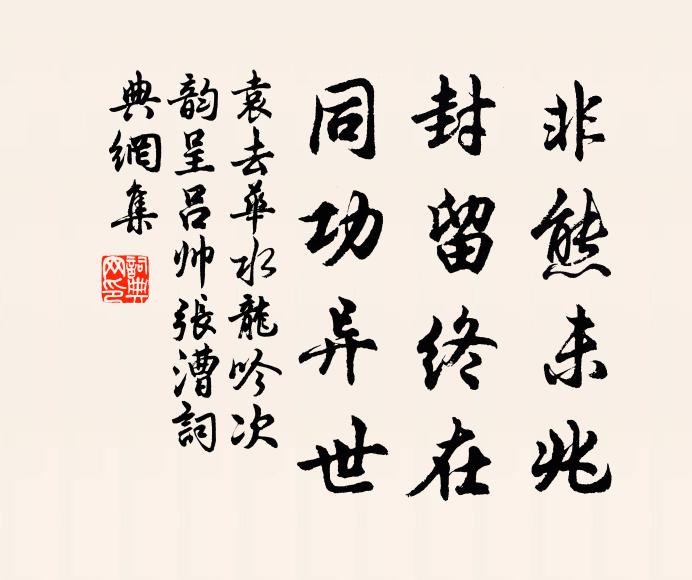 非熊未兆
封留终在
同功异世
袁去華水龍吟次
韵呈吕帅張漕詞
典網集
詞典網印